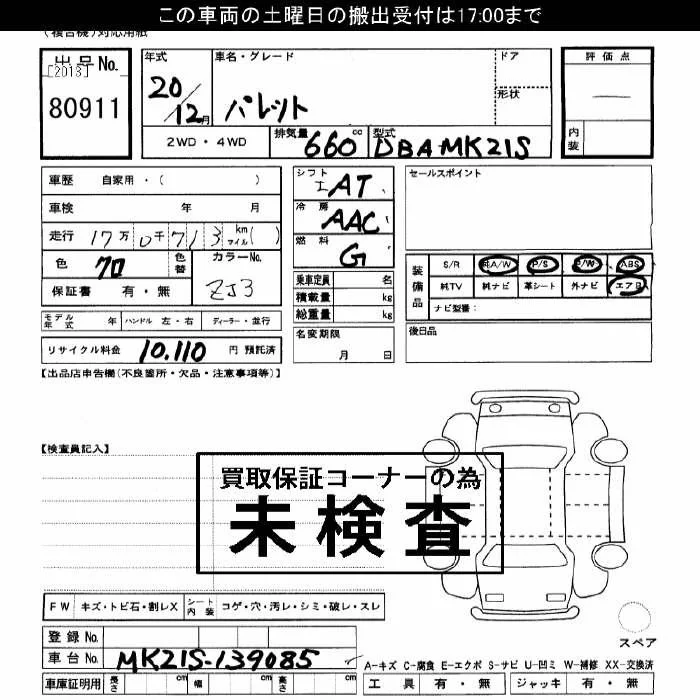 この車両の土曜日の搬出受付は17:00まで
(複合機)対応用紙
出品No.
[2013]
80911
年式
20/12月
車名・グレード
パレット
ドア
形状
評価点
内装
2WD・4WD
排気量
660cc
型式
DBA-MK21S
車歴 自家用・( )
車検 年 月
走行 17万0千713km マイル( )
色 クロ
色替
カラーNo.
ZJ3
保証書 有・無
シフト
AT
冷房
AAC
燃料
G
乗車定員 名
積載量 kg
総重量 kg
名変期限
月 日
セールスポイント
装備品
S/R 純A/W P/S P/W ABS
純TV 純ナビ 革シート 外ナビ エアB
ナビ型番:
後日品
モデル年式 年 ハンドル 左・右 ディーラー・並行
リサイクル料金 10,110 円 預託済
【出品店申告欄(不良箇所・欠品・注意事項等)】
【検査員記入】
買取保証コーナーの為
未検査
FW キズ・トビ石・割レX シート内装 コゲ・穴・汚レ・シミ・破レ・スレ
登録No.
車台No. MK21S-139085
車庫証明用 長さ cm 幅 cm 高さ cm
スペア
A-キズ C-腐食 E-エクボ S-サビ U-凹ミ W-補修 XX-交換済
工具 有・無 ジャッキ 有・無